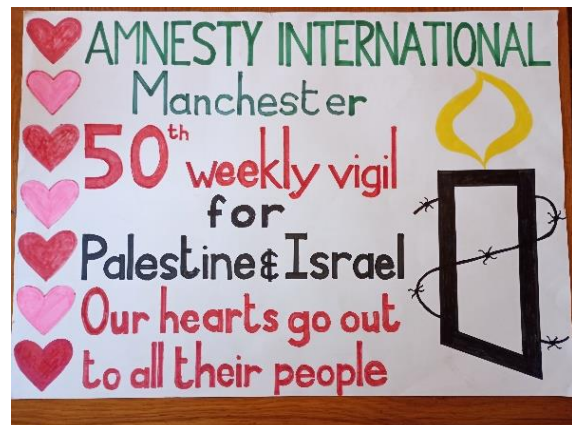 AMNESTY INTERNATIONAL
Manchester
50th weekly vigil
for
Palestine & Israel
Our hearts go out
to all their people